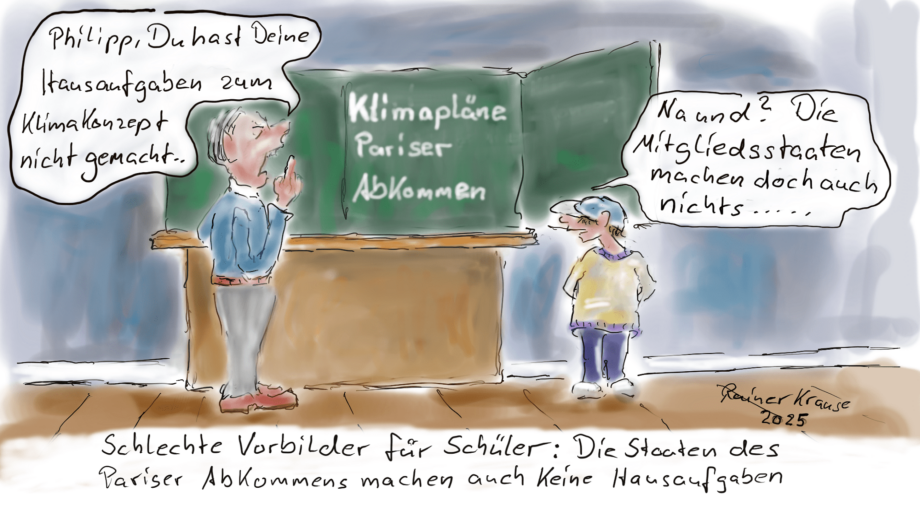 Philipp, Du hast Deine
Hausaufgaben zum
Klimakonzept
nicht gemacht..
Klimapläne
Pariser
Abkommen
Na und? Die
Mitgliedsstaaten
machen doch auch
nichts.....
Rainer Krause
2025
Schlechte Vorbilder für Schüler: Die Staaten des
Pariser Abkommens machen auch keine Hausaufgaben